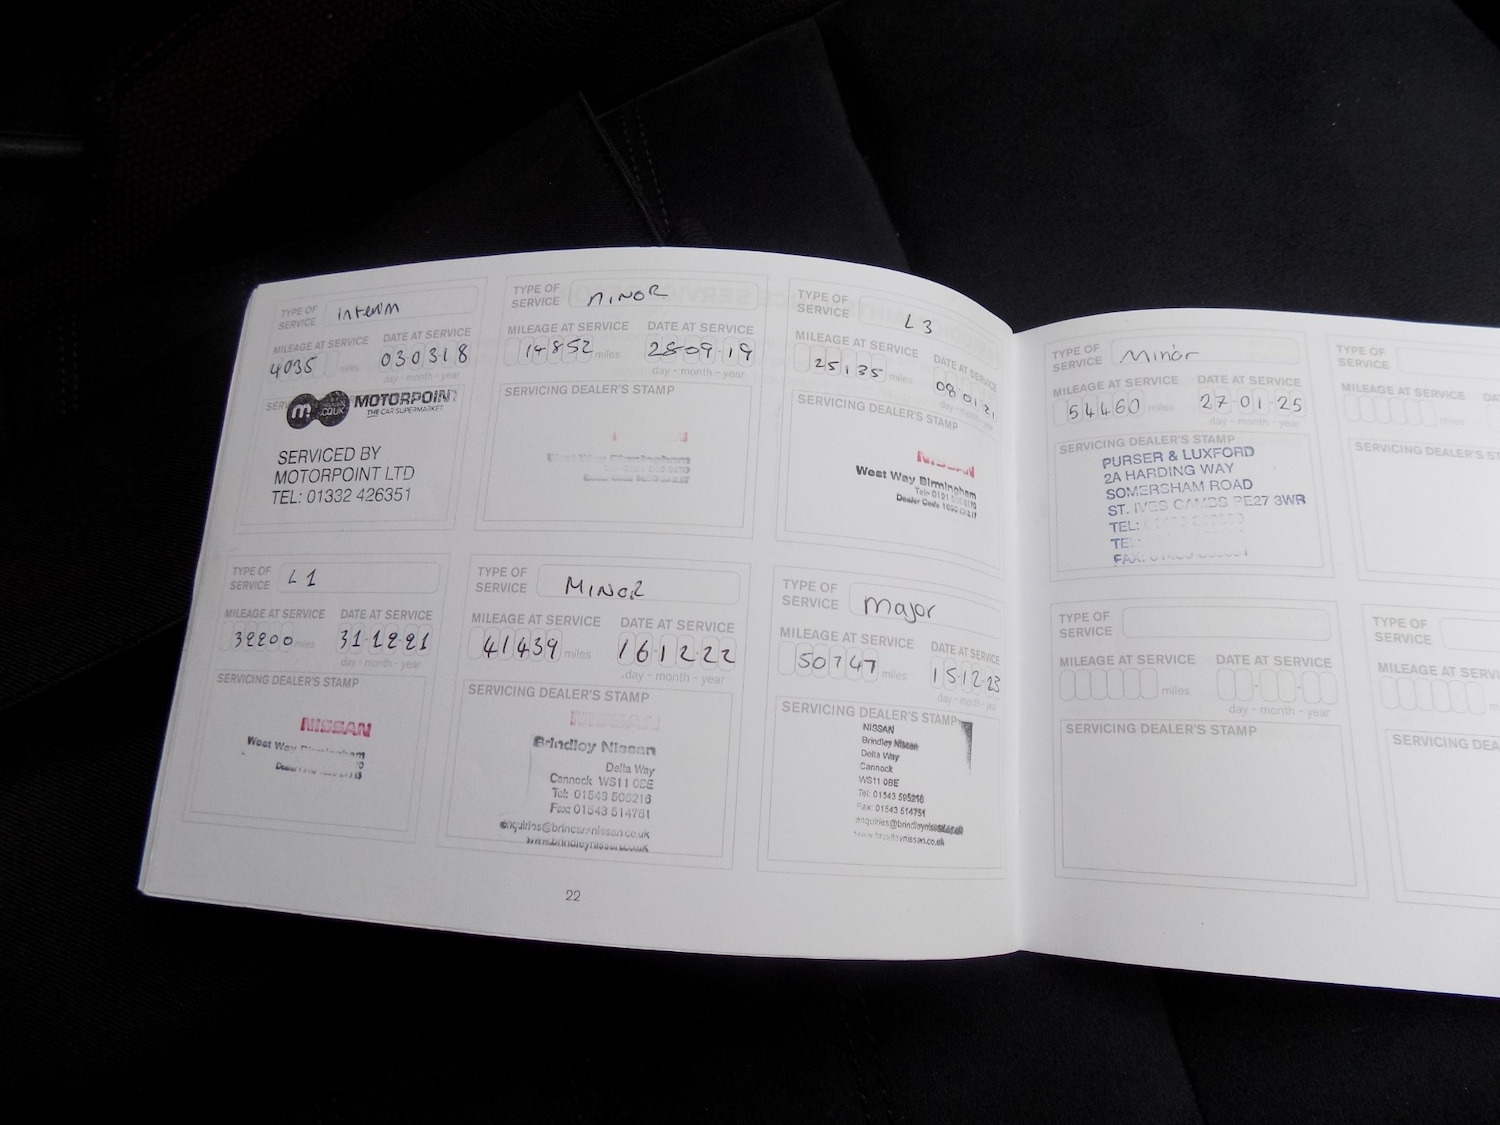 TYPE OF SERVICE interim
MILEAGE AT SERVICE DATE AT SERVICE
4035 miles 030318
day - month - year
m .co.uk MOTORPOINT
THE CAR SUPERMARKET
SERVICED BY
MOTORPOINT LTD
TEL: 01332 426351
TYPE OF SERVICE MINOR
MILEAGE AT SERVICE DATE AT SERVICE
14852 miles 28-09-19
day - month - year
SERVICING DEALER'S STAMP
West Way Birmingham
TYPE OF SERVICE L3
MILEAGE AT SERVICE DATE AT SERVICE
25135 miles 08-01-21
day - month - year
SERVICING DEALER'S STAMP
NISSAN
West Way Birmingham
Tel: 0121
Dealer Code
TYPE OF SERVICE L1
MILEAGE AT SERVICE DATE AT SERVICE
32200 miles 31-12-21
day - month - year
SERVICING DEALER'S STAMP
NISSAN
West Way Birmingham
TYPE OF SERVICE MINOR
MILEAGE AT SERVICE DATE AT SERVICE
41439 miles 16-12-22
day - month - year
SERVICING DEALER'S STAMP
NISSAN
Brindley Nissan
Delta Way
Cannock WS11 0BE
Tel: 01543
Fax: 01543 514751
www.brindleynissan.co.uk
TYPE OF SERVICE Major
MILEAGE AT SERVICE DATE AT SERVICE
50747 miles 15-12-23
day - month - year
SERVICING DEALER'S STAMP
NISSAN
Brindley Nissan
Delta Way
Cannock
WS11 0BE
Tel: 01543 595216
Fax: 01543 514751
www.brindleynissan.co.uk
22
TYPE OF SERVICE Minor
MILEAGE AT SERVICE DATE AT SERVICE
54460 miles 27-01-25
day - month - year
SERVICING DEALER'S STAMP
PURSER & LUXFORD
2A HARDING WAY
SOMERSHAM ROAD
ST. IVES CAMBS PE27 3WR
TEL:
TEL:
FAX:
TYPE OF SERVICE
MILEAGE AT SERVICE
miles
SERVICING DEALER'S
TYPE OF SERVICE
MILEAGE AT SERVICE DATE AT SERVICE
miles
day - month - year
SERVICING DEALER'S STAMP
TYPE OF SERVICE
MILEAGE AT SERVICE
SERVICING DEALER'S